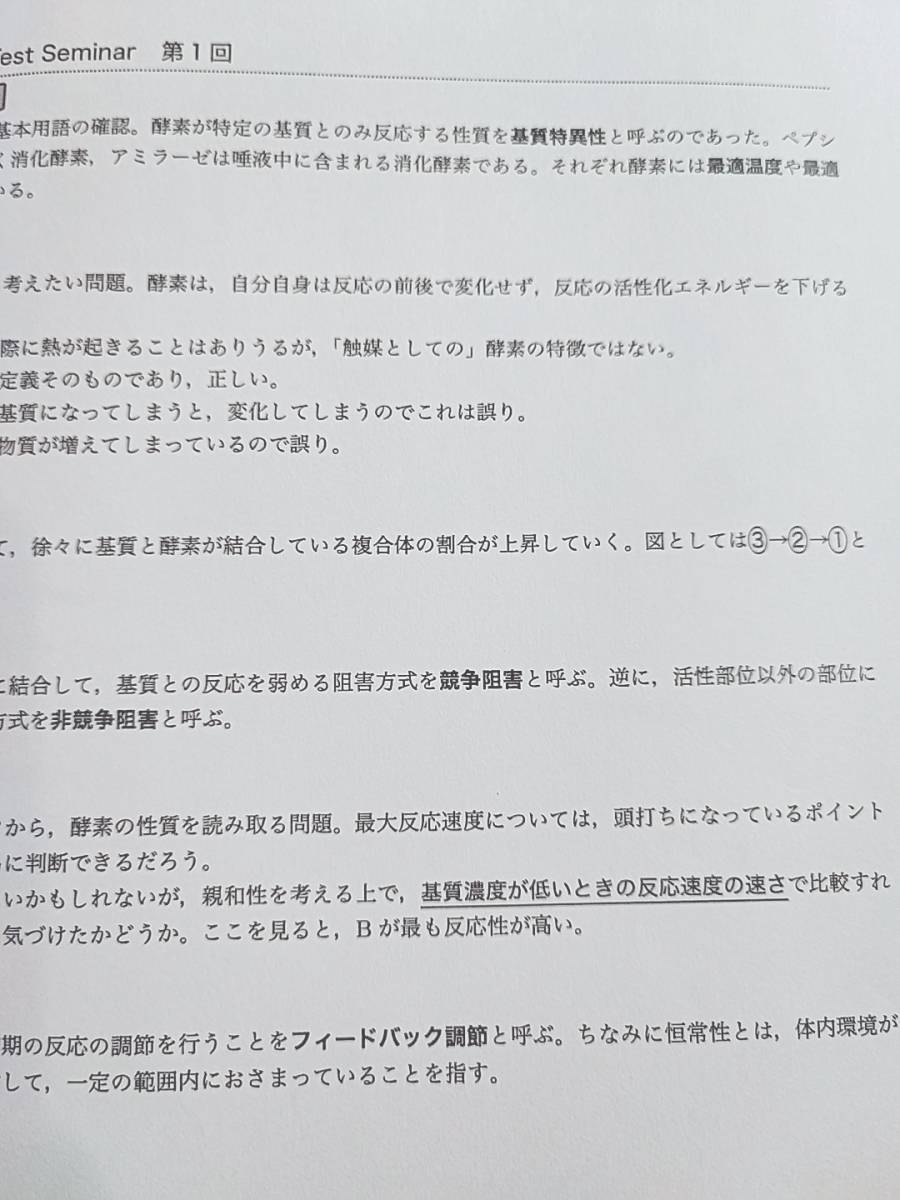 Test Seminar 第1回
基本用語の確認。酵素が特定の基質とのみ反応する性質を基質特異性と呼ぶのであった。ペプシ
く消化酵素，アミラーゼは唾液中に含まれる消化酵素である。それぞれ酵素には最適温度や最適
いる。
考えたい問題。酵素は，自分自身は反応の前後で変化せず，反応の活性化エネルギーを下げる
際に熱が起きることはありうるが，「触媒としての」酵素の特徴ではない。
定義そのものであり，正しい。
基質になってしまうと，変化してしまうのでこれは誤り。
物質が増えてしまっているので誤り。
て，徐々に基質と酵素が結合している複合体の割合が上昇していく。図としては③→②→①と
に結合して，基質との反応を弱める阻害方式を競争阻害と呼ぶ。逆に，活性部位以外の部位に
方式を非競争阻害と呼ぶ。
から，酵素の性質を読み取る問題。最大反応速度については，頭打ちになっているポイント
に判断できるだろう。
いかもしれないが，親和性を考える上で，基質濃度が低いときの反応速度の速さで比較すれ
気づけたかどうか。ここを見ると，Bが最も反応性が高い。
期の反応の調節を行うことをフィードバック調節と呼ぶ。ちなみに恒常性とは，体内環境が
して，一定の範囲内におさまっていることを指す。